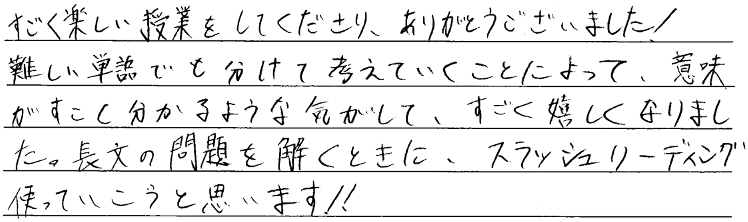 すごく楽しい授業をしてくださり、ありがとうございました!
難しい単語でも分けて考えていくことによって、意味
がすこし分かるような気がして、すごく嬉しくなりまし
た。長文の問題を解くときに、スラッシュリーディング
使っていこうと思います!!